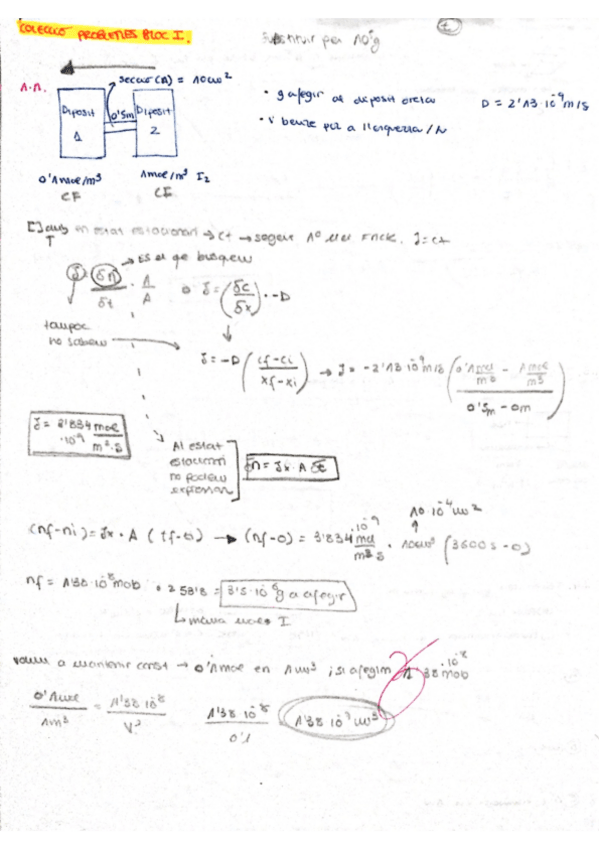 COL·LECCIÓ PROBLEMES BLOC I.
Substituir per 10⁻⁹g
1.1.
secció (A) = 10cm²
Dipòsit 1
0'5m
Dipòsit 2
0'1mol/m³
1mol/m³ I₂
CF
CI
• g afegir al dipòsit
D = 2'13·10⁻⁹ m/s
• V beure per a l'esquerra/h
[] en estat estacionari → ct → segons 1ª llei Fick. J=ct
És el que busquem
J = δn/δt · 1/A o J = (δc/δx) · -D
tampoc
no sabem
J = -D (cf-ci / xf-xi) → J = -2'13 10⁻⁹ m/s (0'1 mol/m³ - 1 mol/m³ / 0'5m - 0m)
J = 3'834 mol ·10⁻⁹ / m²·s
Al estat
estacionari
no podem
expressar
n = Jx · A δt
10·10⁻⁴ m²
(nf-ni) = Jx · A (tf-ti) → (nf-0) = 3'834 ·10⁻⁹ mol/m² s · 10cm² (3600s - 0)
nf = 1'38·10⁻⁸ mol · 253'8 = 3'5·10⁻⁶ g a afegir
massa molar I
volem a mantenir const → 0'1mol en 1m³ ; si afegim 1'38·10⁻⁸ mol
0'1mol / 1m³ = 1'38 10⁻⁸ / V
1'38 10⁻⁸ / 0'1
1'38 10⁻⁷ m³